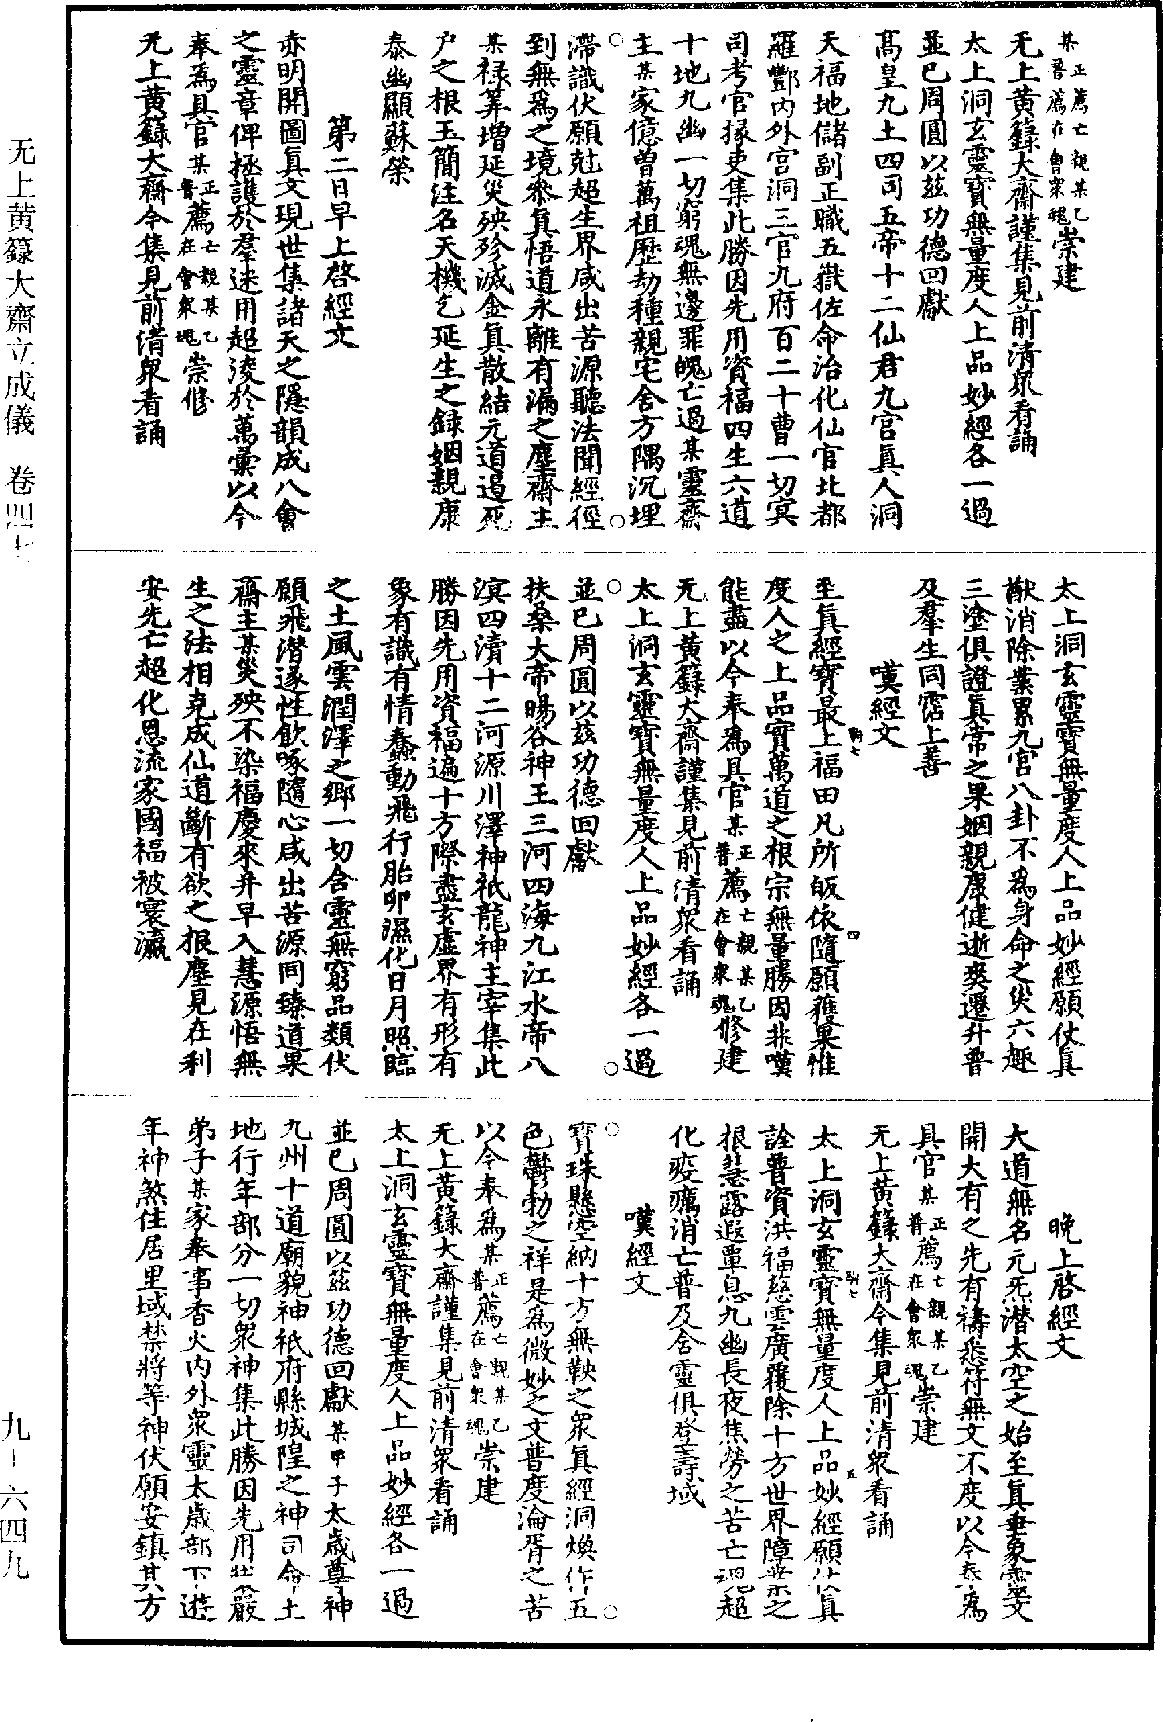 某正薦亡親某乙普薦在會眾魂崇建
无上黃籙大齋謹集見前清眾看誦
太上洞玄靈寶無量度人上品妙經各一過
並已周圓以玆功德回獻
高皇九土四司五帝十二仙君九宮真人洞
天福地儲副正職五嶽佐命治化仙官北都
羅酆內外宮洞三官九府百二十曹一切冥
司考官掾吏集此勝因先用資福四生六道
十地九幽一切窮魂無邊罪魄亡過某靈齋
主某家億曾萬祖歷劫種親宅舍方隅沉埋
滯識伏願尅超生界咸出苦源聽法聞經徑
到無為之境參真悟道永離有漏之塵齋主
某祿筭增延災殃殄滅金真散結元道遏死
戶之根玉簡注名天機乞延生之錄姻親康
泰幽顯蘇榮
第二日早上啓經文
赤明開圖真文現世集諸天之隱韻成八會
之靈章俾拯護於羣迷用超淩於萬彙以今
奉為具官某正薦亡親某乙普薦在會眾魂崇修
无上黃籙大齋今集見前清眾看誦
太上洞玄靈寶無量度人上品妙經願仗真
猷消除業累九宮八卦不為身命之災六趣
三塗俱證真常之果姻親康健逝爽遷升普
及羣生同霑上善
嘆經文
至真經寶最上福田凡所皈依隨願獲果惟
度人之上品實萬道之根宗無量勝因非嘆
能盡以今奉為具官某正薦亡親某乙普薦在會眾魂修建
无上黃籙大齋謹集見前清眾看誦
太上洞玄靈寶無量度人上品妙經各一過
並已周圓以玆功德回獻
扶桑大帝暘谷神王三河四海九江水帝八
溟四瀆十二河源川澤神祇龍神主宰集此
勝因先用資福遍十方際盡玄虛界有形有
象有識有情蠢動飛行胎卵濕化日月照臨
之土風雲潤澤之鄉一切含靈無窮品類伏
願飛潛遂性飲啄隨心咸出苦源同臻道果
齋主某災殃不染福慶來并早入慧源悟無
生之法相克成仙道斷有欲之根塵見在利
安先亡超化恩流家國福被寰瀛
晚上啓經文
大道無名元炁潛太空之始至真垂象靈文
開大有之先有禱悉符無文不度以今奉為
具官某正薦亡親某乙普薦在會眾魂崇建
无上黃籙大齋今集見前清眾看誦
太上洞玄靈寶無量度人上品妙經願仗真
詮普資洪福慈雲廣覆除十方世界障業之
根慧露遐覃息九幽長夜焦勞之苦亡魂超
化疫癘消亡普及含靈俱登壽域
嘆經文
寶珠懸空納十方無鞅之眾真經洞煥作五
色鬱勃之祥是為微妙之文普度淪胥之苦
以今奉為某正薦亡親某乙普薦在會眾魂崇建
无上黃籙大齋謹集見前清眾看誦
太上洞玄靈寶無量度人上品妙經各一過
並已周圓以玆功德回獻某甲子太歲尊神
九州十道廟貌神祇府縣城隍之神司命土
地行年部分一切眾神集此勝因先用莊嚴
弟子某家奉事香火內外眾靈太歲部下遊
年神煞住居里域禁將等神伏願安鎮其方
无上黃籙大齋立成儀 卷四七
九－六四九